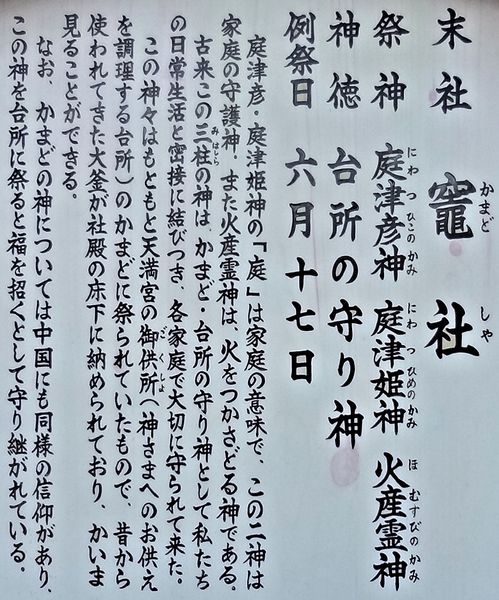 末社 竈社
かまど しゃ
祭神 庭津彦神 庭津姫神 火産霊神
にわ つ ひこの かみ にわ つ ひめの かみ ほ むすびの かみ
神徳 台所の守り神
例祭日 六月十七日
庭津彦・庭津姫神の「庭」は家庭の意味で、この二神は
家庭の守護神、また火産霊神は、火をつかさどる神である。
古来この三柱の神は、かまど・台所の守り神として私たち
みはしら
の日常生活と密接に結びつき、各家庭で大切に守られて来た。
この神々はもともと天満宮の御供所(神さまへのお供え
ごくしょ
を調理する台所)のかまどに祭られていたもので、昔から
使われてきた大釜が社殿の床下に納められており、かいま
見ることができる。
なお、かまどの神については中国にも同様の信仰があり、
この神を台所に祭ると福を招くとして守り継がれている。